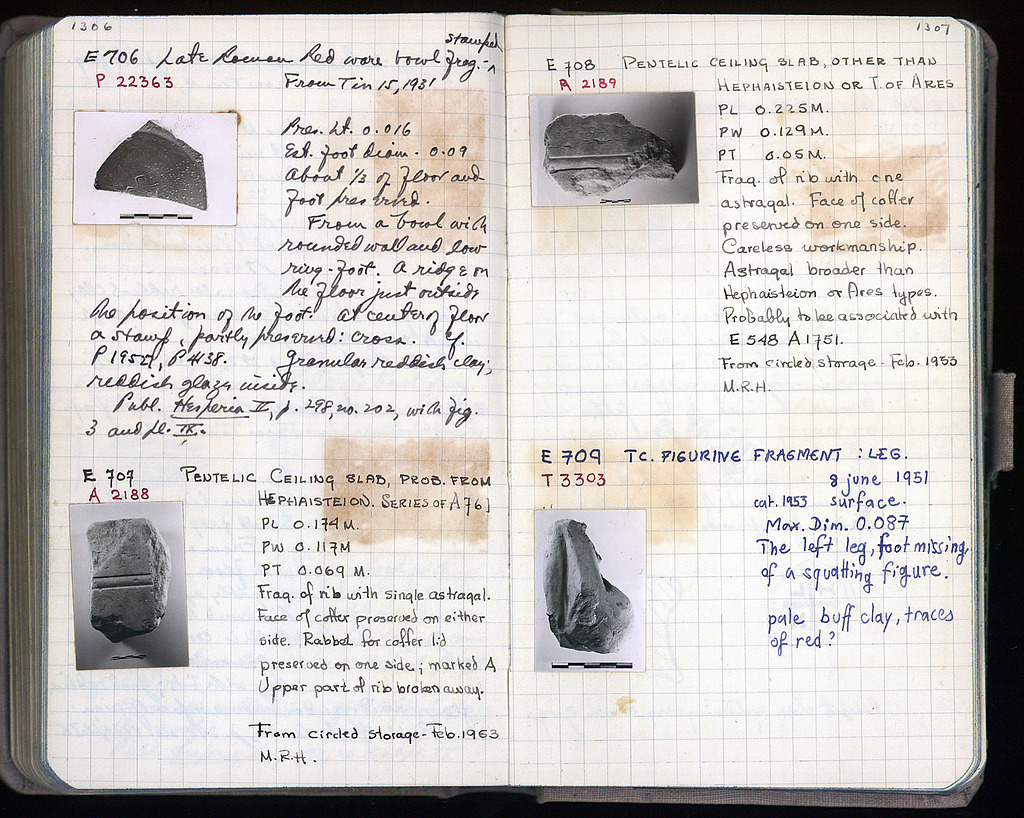 1306
stamped
E 706 Late Roman Red ware bowl frag.-^
P 22363
From Tin 15, 1931
Pres. Ht. 0.016
Est. foot diam. 0.09
About 1/3 of floor and
foot preserved.
From a bowl with
rounded wall and low
ring-foot. A ridge on
the floor just outside
the position of the foot. At center of floor
a stamp, partly preserved: cross. cf.
P 4138. Granular reddish clay;
reddish glaze inside.
Publ. Hesperia II, p. 298, no. 202, with fig.
3 and pl. IX.
E 707 PENTELIC CEILING SLAB, PROB. FROM
A 2188
HEPHAISTEION. SERIES OF A 76]
PL 0.174 M.
PW 0.117M
PT 0.069 M.
Frag. of rib with single astragal.
Face of coffer preserved on either
side. Rabbet for coffer lid
preserved on one side; marked A
Upper part of rib broken away.
From circled storage - Feb. 1953
M.R.H.
1307
E 708 PENTELIC CEILING SLAB, OTHER THAN
A 2189
HEPHAISTEION OR T. OF ARES
PL 0.225M.
PW 0.129M.
PT 0.05M.
Frag. of rib with one
astragal. Face of coffer
preserved on one side.
Careless workmanship.
Astragal broader than
Hephaisteion or Ares types.
Probably to be associated with
E 548 A 1751.
From circled storage - Feb. 1953
M.R.H.
E 709 TC. FIGURINE FRAGMENT : LEG.
T 3303
8 june 1951
cat. 1953 surface.
Max. Dim. 0.087
The left leg, foot missing,
of a squatting figure.
pale buff clay, traces
of red?